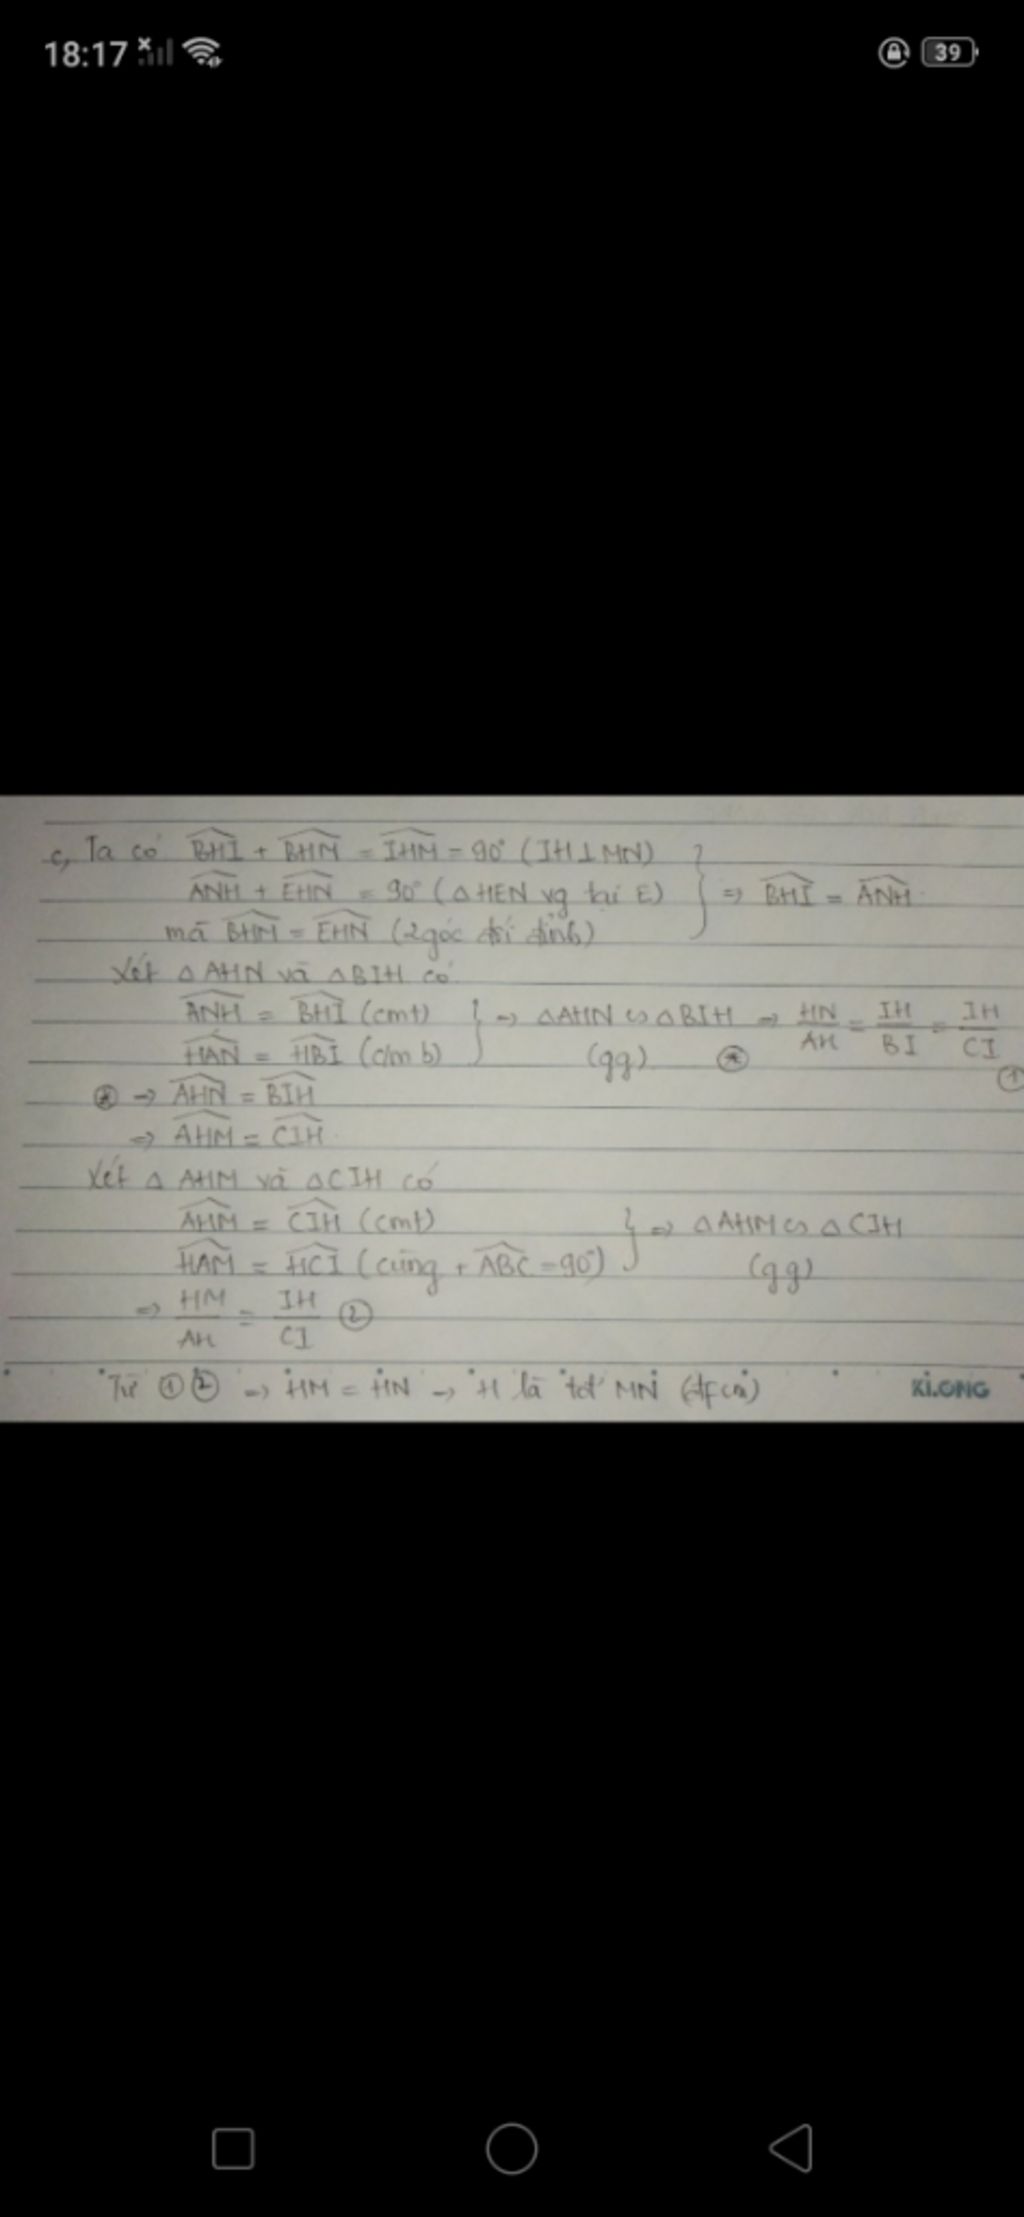 18:17
39
c, Ta có BHI + BHM = IHM = 90° (IH⊥MN)
ANH + EHN = 90° (△HEN vg tại E)
mà BHM = EHN (2 góc đối đỉnh)
} => BHI = ANH
Xét △AHN và △BIH có
ANH = BHI (cmt)
HAN = HBI (c/m b)
} => △AHN ∽ △BIH => HN/AH = IH/BI = IH/CI
(gg) (*) (1)
(*) => AHN = BIH
=> AHM = CIH
Xét △AHM và △CIH có
AHM = CIH (cmt)
HAM = HCI (cùng + ABC = 90°)
} => △AHM ∽ △CIH
(gg)
=> HM/AH = IH/CI (2)
Từ (1)(2) => HM = HN => H là tđ MN (đfcm)
Ki.ONG